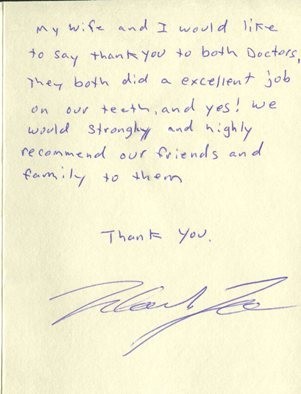 My wife and I would like
to say thankyou to both Doctors,
They both did a excellent job
on our teeth, and yes! we
would strongly and highly
recommend our friends and
family to them
Thank You.